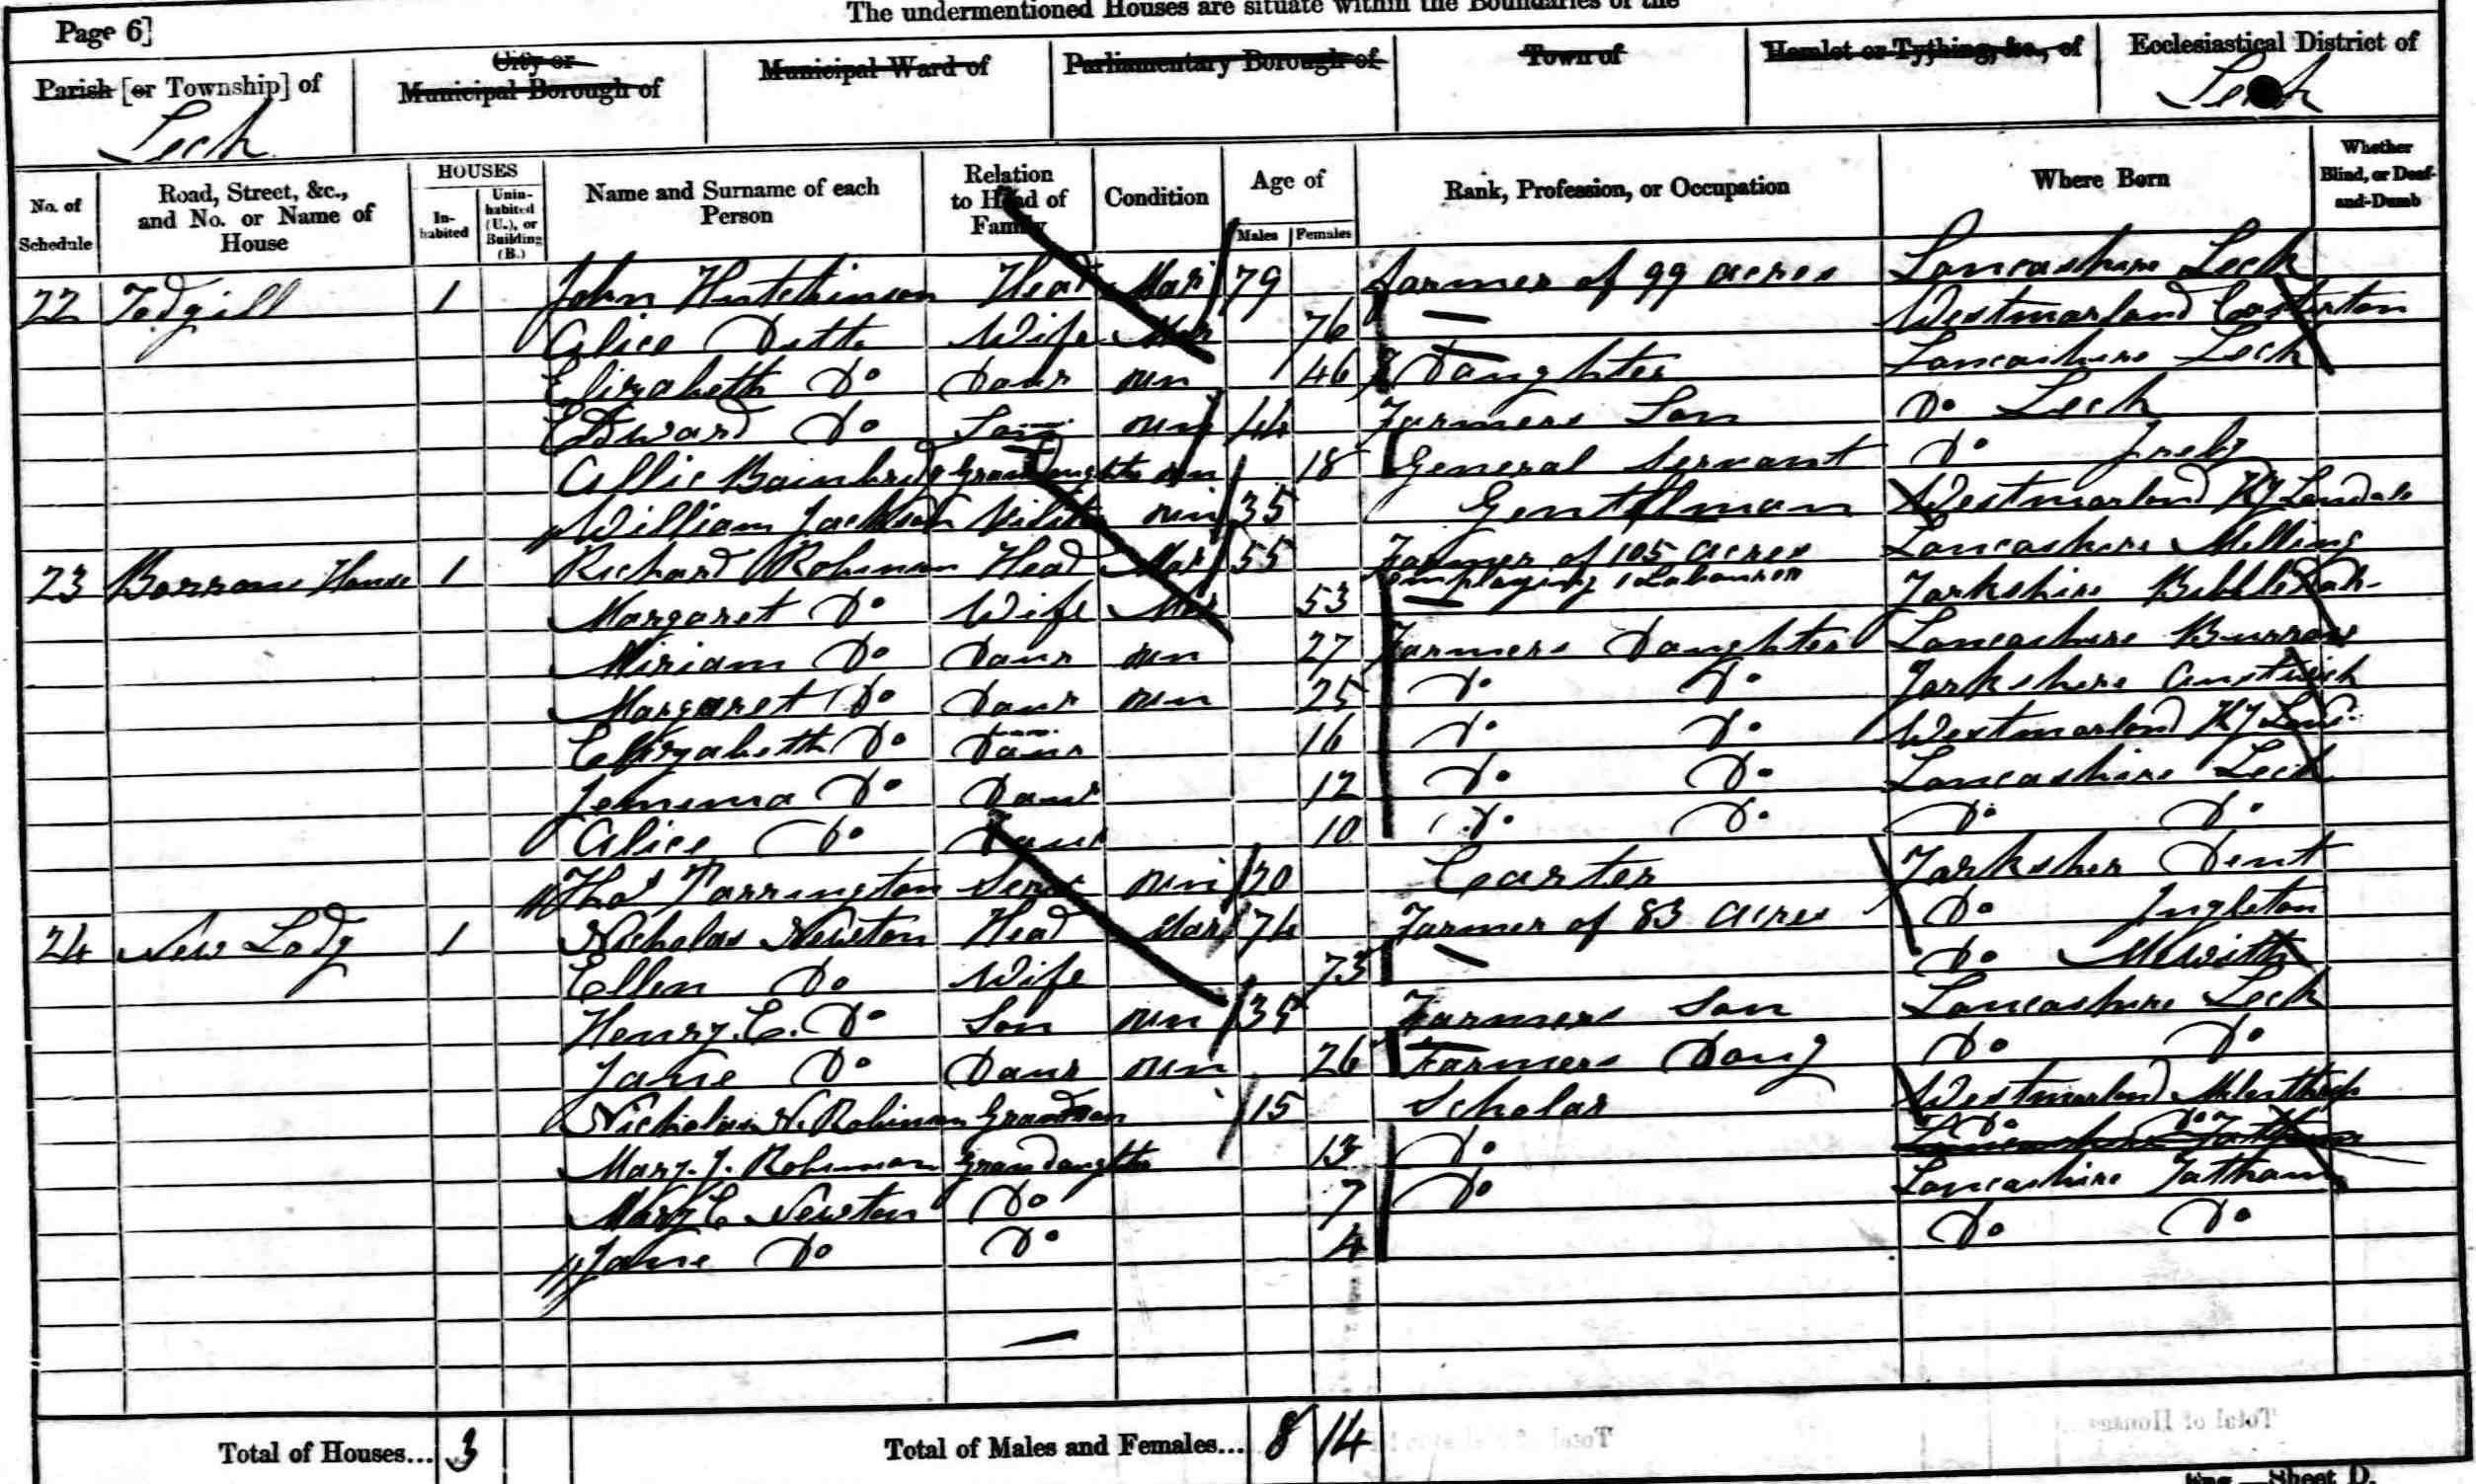 The undermentioned Houses are situate within the Boundaries of the
Page 6]
Parish [or Township] of
Leck
City or
Municipal Borough of
Municipal Ward of
Parliamentary Borough of
Town of
Hamlet or Tything, &c., of
Ecclesiastical District of
Leck
No. of Schedule
Road, Street, &c., and No. or Name of House
HOUSES
In-habited
Unin-habited (U.), or Building (B.)
Name and Surname of each Person
Relation to Head of Family
Condition
Age of
Males
Females
Rank, Profession, or Occupation
Where Born
Whether Blind, or Deaf-and-Dumb
22 Todgill 1 John Hutchinson Head Mar 79 farmer of 99 acres Lancashire Leck
Alice Ditto Wife Mar 76 — Westmorland Casterton
Elizabeth Do Daur un 46 Daughter Lancashire Leck
Edward Do Son un 44 Farmers Son Do Leck
Allic Bainbridg Grandaughter un 18 General Servant Do Ireby
William Jackson Visitor un 35 Gentelman Westmorland Ky Londale
23 Borrow House 1 Richard Robinson Head Mar 55 Farmer of 105 acres employing 1 Labourer Lancashire Melling
Margaret Do Wife Mar 53 — Yorkshire
Miriam Do Daur un 27 Farmers Daughter Lancashire Burrow
Margaret Do Daur un 25 Do Do Yorkshire Austwick
Elizabeth Do Daur 16 Do Do Westmorland Ky
Jemima Do Daur 12 Do Do Lancashire Leck
Alice Do Daur 10 Do Do Do Do
Thos Parrington Serv un Carter Yorksher Dent
24 New Lodg 1 Nicholas Newton Head Mar 74 Farmer of 83 Acres Do Ingleton
Ellen Do Wife 73 — Do Mewith
Henry. C. Do Son un 35 Farmers Son Lancashire Leck
Jane Do Daur un 26 Farmers Daug Do Do
Nicholas N. Robinson Grandson 15 Scholar Westmorland
Mary. J. Robinson Grandaughter 13 Do Do Do
Mary E Newton Do 7 Do Lancashire Tatham
Jane Do Do 4 Do Do
Total of Houses... 3
Total of Males and Females... 8 14
Eng.—Sheet D.